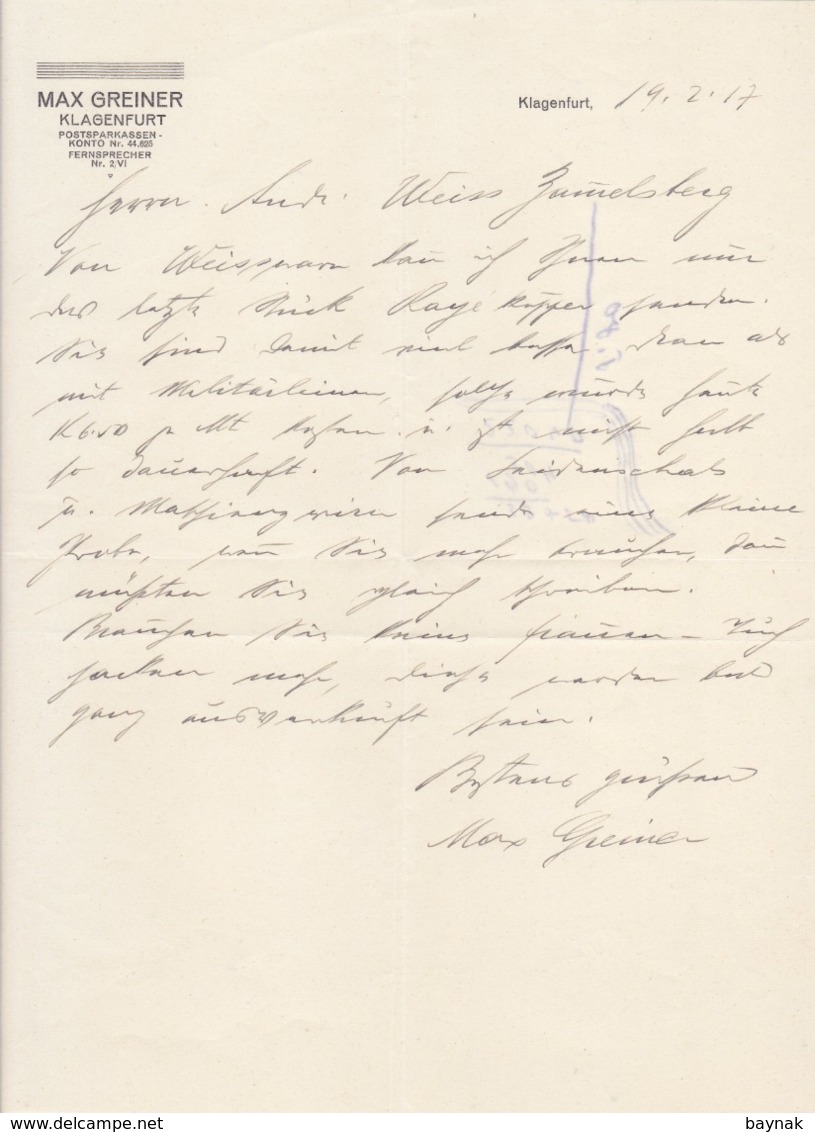 MAX GREINER
KLAGENFURT
POSTSPARKASSEN-
KONTO Nr. 44.625
FERNSPRECHER
Nr. 2/VI
Klagenfurt, 19. 2. 17
Herrn Andr. Weiss Zammelsberg
Von Weisswaren kann ich Ihnen nur
das letzte Stück Rayé Köpper senden.
Sie sind damit viel besser dran als
mit Militärleinen, solche würde heute
K 6.50 p Mt kosten u. ist nicht halb
so dauerhaft. Von Seidenschals
u. sende eine kleine
Probe, wenn Sie mehr brauchen, dann
müssten Sie gleich schreiben.
Brauchen Sie keine Frauen-Tuch
jacken mehr, diese werden bald
ganz ausverkauft sein.
Bestens grüssend
Max Greiner
baynak